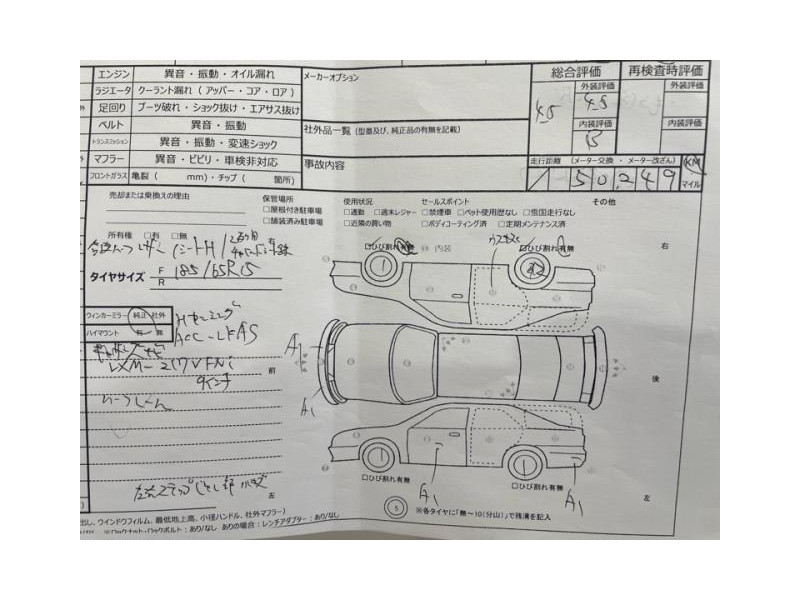 エンジン 異音・振動・オイル漏れ
ラジエータ クーラント漏れ（アッパー・コア・ロア）
足回り ブーツ破れ・ショック抜け・エアサス抜け
ベルト 異音・振動
トランスミッション 異音・振動・変速ショック
マフラー 異音・ビビリ・車検非対応
フロントガラス 亀裂（ mm）・チップ（ 箇所）
メーカーオプション
社外品一覧（型番及び、純正品の有無を記載）
事故内容
総合評価 再検査時評価
外装評価 外装評価
4.5 4.5
内装評価 内装評価
B
走行距離 （メーター交換・メーター改ざん） KM
150,249 マイル
売却または乗換えの理由
保管場所
□屋根付き駐車場
□舗装済み駐車場
使用状況
□通勤 □週末レジャー
□近隣の買い物
セールスポイント
□禁煙車 □ペット使用歴なし □雪国走行なし
□ボディコーティング済 □定期メンテナンス済
その他
所有権 □有 □無
シートH
タイヤサイズ F 185/65R15
R
ウィンカーミラー 純正 社外
ハイマウント 有 無
ACC-LKAS
LXM-217VFNi
□ひび割れ有無 内装 □ひび割れ有無
右
A1
前 後
A1
A1 A1
□ひび割れ有無 □ひび割れ有無
左 左
5 ※各タイヤに「無～10（分山）」で残溝を記入
出し、ウインドウフィルム、最低地上高、小径ハンドル、社外マフラー）
※ロックナット・ロックボルト：あり/なし ありの場合：レンチアダプター：あり/なし